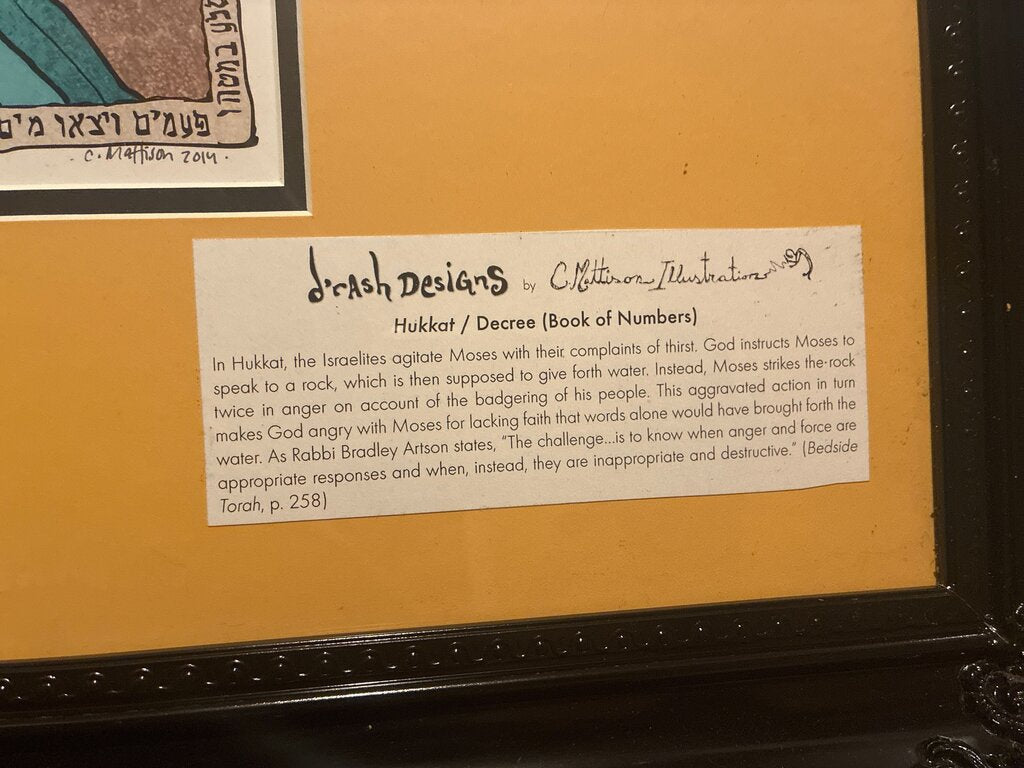 פעמים ויצאו מים
במטהו
C. Mattison 2014.
d'rash Designs by C. Mattison Illustration
Hukkat / Decree (Book of Numbers)
In Hukkat, the Israelites agitate Moses with their complaints of thirst. God instructs Moses to
speak to a rock, which is then supposed to give forth water. Instead, Moses strikes the rock
twice in anger on account of the badgering of his people. This aggravated action in turn
makes God angry with Moses for lacking faith that words alone would have brought forth the
water. As Rabbi Bradley Artson states, "The challenge...is to know when anger and force are
appropriate responses and when, instead, they are inappropriate and destructive." (Bedside
Torah, p. 258)